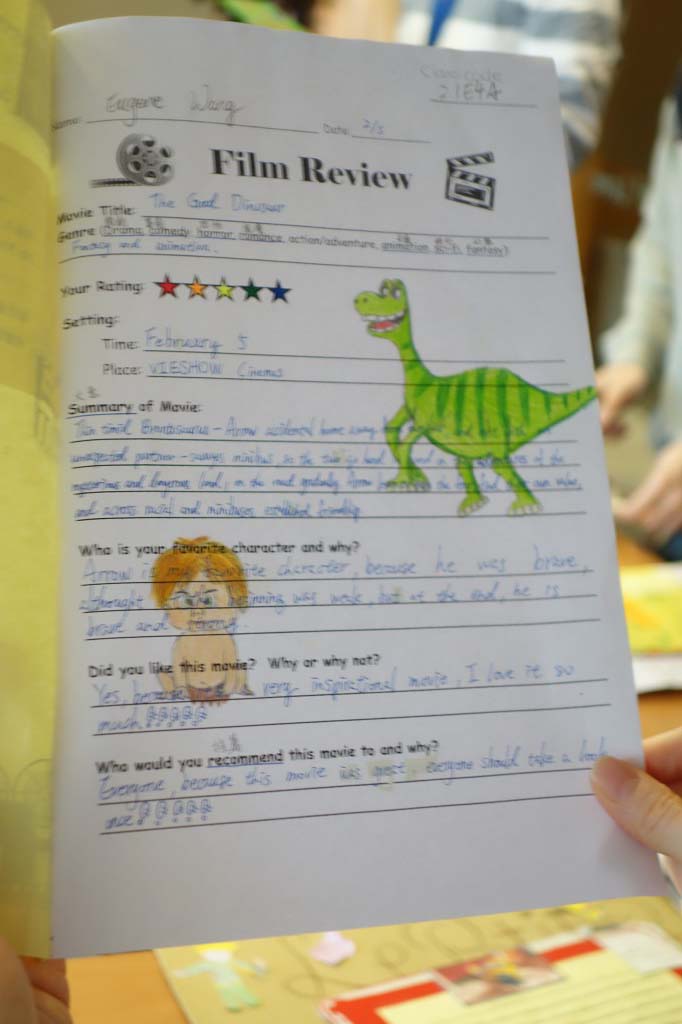 Class code
21E4A
Name: Eugene Wang Date: 2/5
Film Review
Movie Title: The Good Dinosaur
Genre (Drama, comedy, horror, romance, action/adventure, animation, sci-fi, fantasy)
Fantasy and animation.
Your Rating:
Setting:
Time: February 5
Place: VIESHOW Cinemas
Summary of Movie:
This timid Brontosaurus - Arrow accidental home away
unexpected partner - savages minitus, so the two go hand on of the
mysterious and dangerous land, on the road gradually Arrow the own value,
and across racial and established friendship.
Who is your favorite character and why?
Arrow is my favorite character, because he was brave,
althought beginning was weak, but at the end, he is
brave and strong.
Did you like this movie? Why or why not?
Yes, because very inspirational movie, I love it so
much
Who would you recommend this movie to and why?
Everyone, because this movie was great, everyone should take a look
once